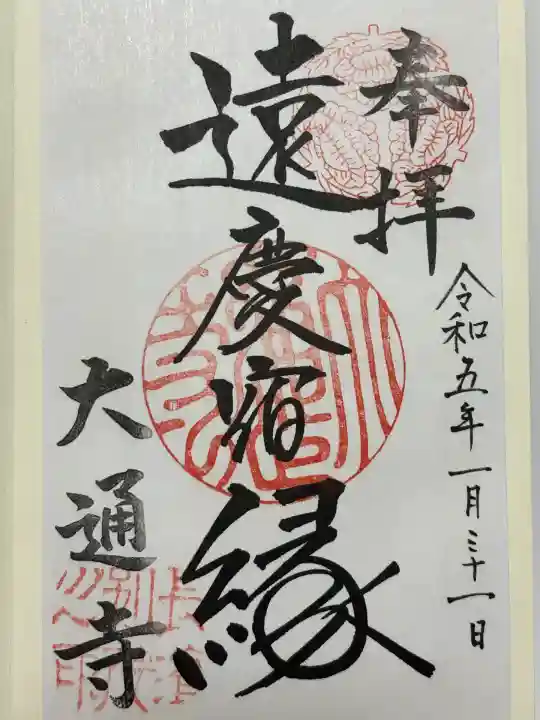 奉拝
令和五年一月三十一日
遠慶宿縁
大通寺